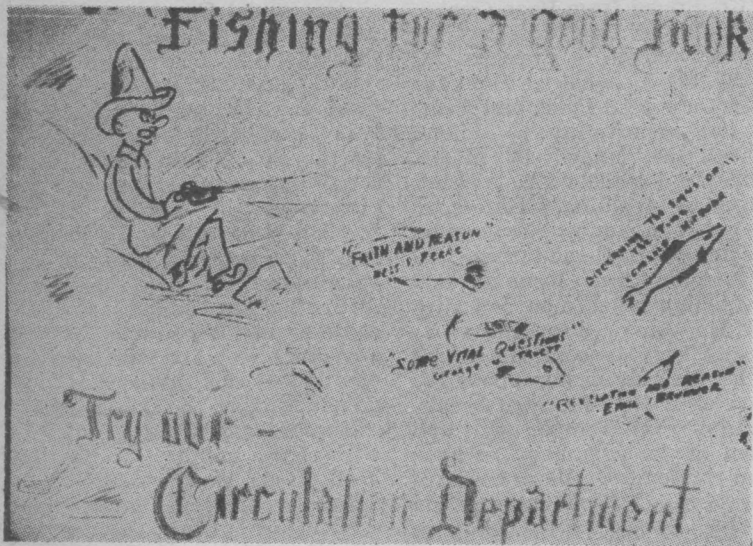 "Fishing for a good book
"FAITH AND REASON"
NELS F. FERRE
DISCERNING THE SIGNS OF"
THE TIMES
REINHOLD NIEBUHR
"SOME VITAL QUESTIONS"
GEORGE W TRUETT
"REVELATION AND REASON"
EMIL BRUNNER
Try our -
Circulation Department